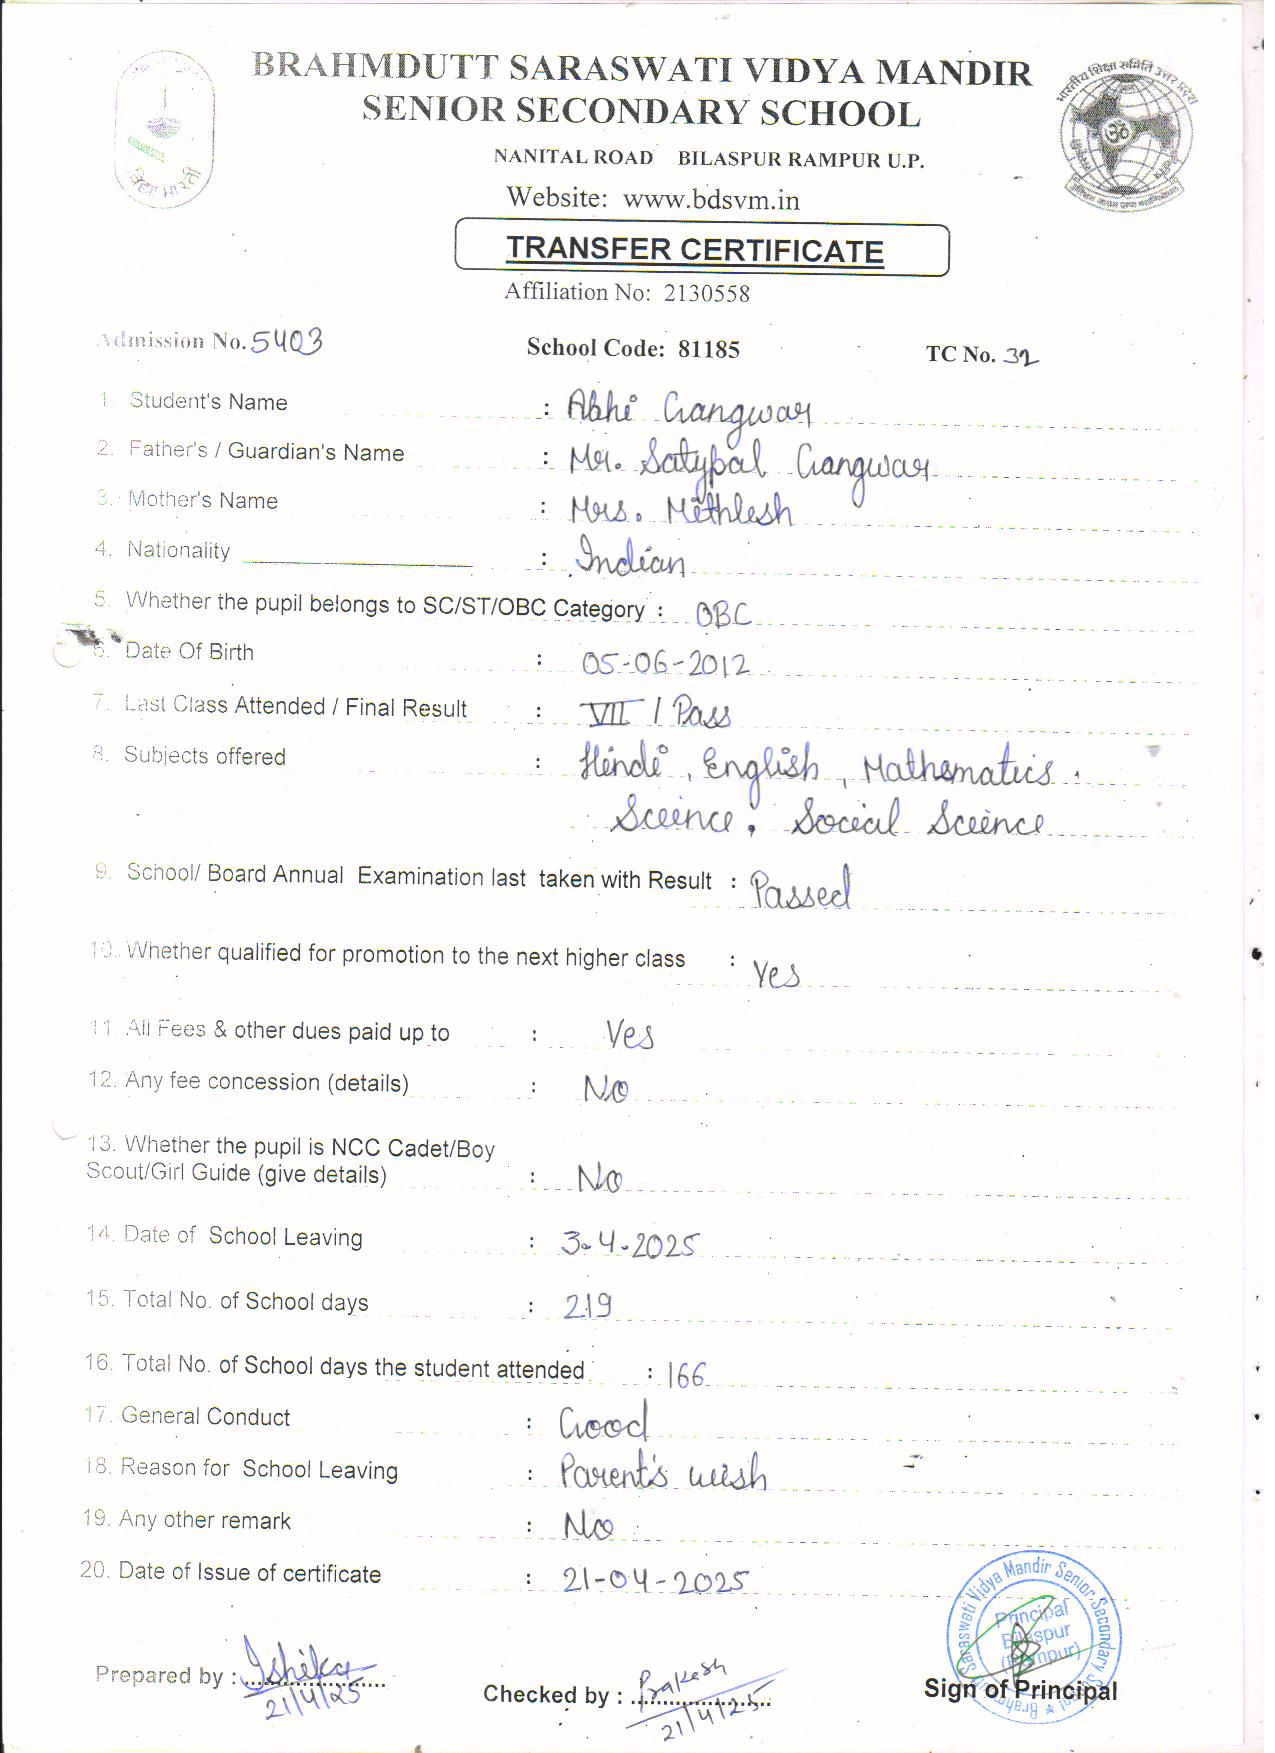 BRAHMDUTT SARASWATI VIDYA MANDIR
SENIOR SECONDARY SCHOOL
NANITAL ROAD BILASPUR RAMPUR U.P.
Website: www.bdsvm.in
TRANSFER CERTIFICATE
Affiliation No: 2130558
Admission No. 5403 School Code: 81185 TC No. 32
1. Student's Name : Abhi Gangwar
2. Father's / Guardian's Name : Mr. Satypal Gangwar
3. Mother's Name : Mrs. Methlesh
4. Nationality : Indian
5. Whether the pupil belongs to SC/ST/OBC Category : OBC
6. Date Of Birth : 05-06-2012
7. Last Class Attended / Final Result : VII / Pass
8. Subjects offered : Hindi, English, Mathematics,
Sceince, Social Sceince
9. School/ Board Annual Examination last taken with Result : Passed
10. Whether qualified for promotion to the next higher class : Yes
11. All Fees & other dues paid up to : Yes
12. Any fee concession (details) : No
13. Whether the pupil is NCC Cadet/Boy
Scout/Girl Guide (give details) : No
14. Date of School Leaving : 3-4-2025
15. Total No. of School days : 219
16. Total No. of School days the student attended : 166
17. General Conduct : Good
18. Reason for School Leaving : Parent's wish
19. Any other remark : No
20. Date of Issue of certificate : 21-04-2025
Saraswati Vidya Mandir Senior Secondary
Principal
Bilaspur
(Rampur)
Prepared by : Ishika
21/4/25
Checked by : Prakesh
21/4/25
Sign of Principal
विद्या भारती
भारतीय शिक्षा समिति उत्तर प्रदेश
ॐ